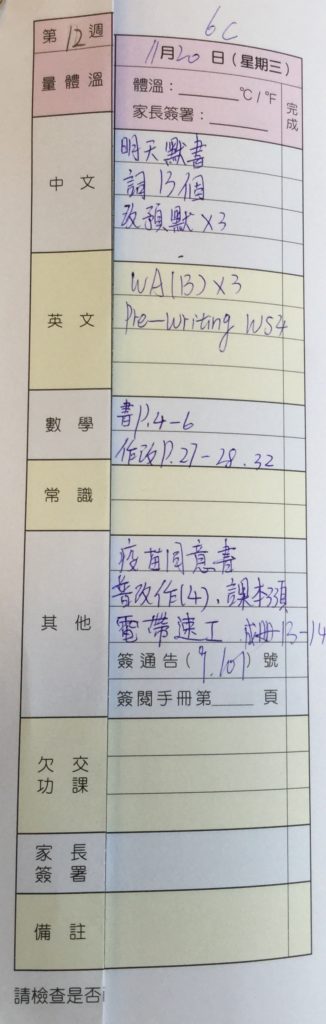 6C
第12週
11月20日(星期三)
量體溫
體溫：______°C/°F
家長簽署：______
完成
中文
明天默書
詞13個
改預默×3
英文
WA(13)×3
Pre-writing WS4
數學
書P.4-6
作改P.27-28.32
常識
其他
疫苗同意書
普改作(4)、課本33頁
電帶速工 13-14
簽通告(9.107)號
簽閱手冊第____頁
欠交功課
家長簽署
備註
請檢查是否